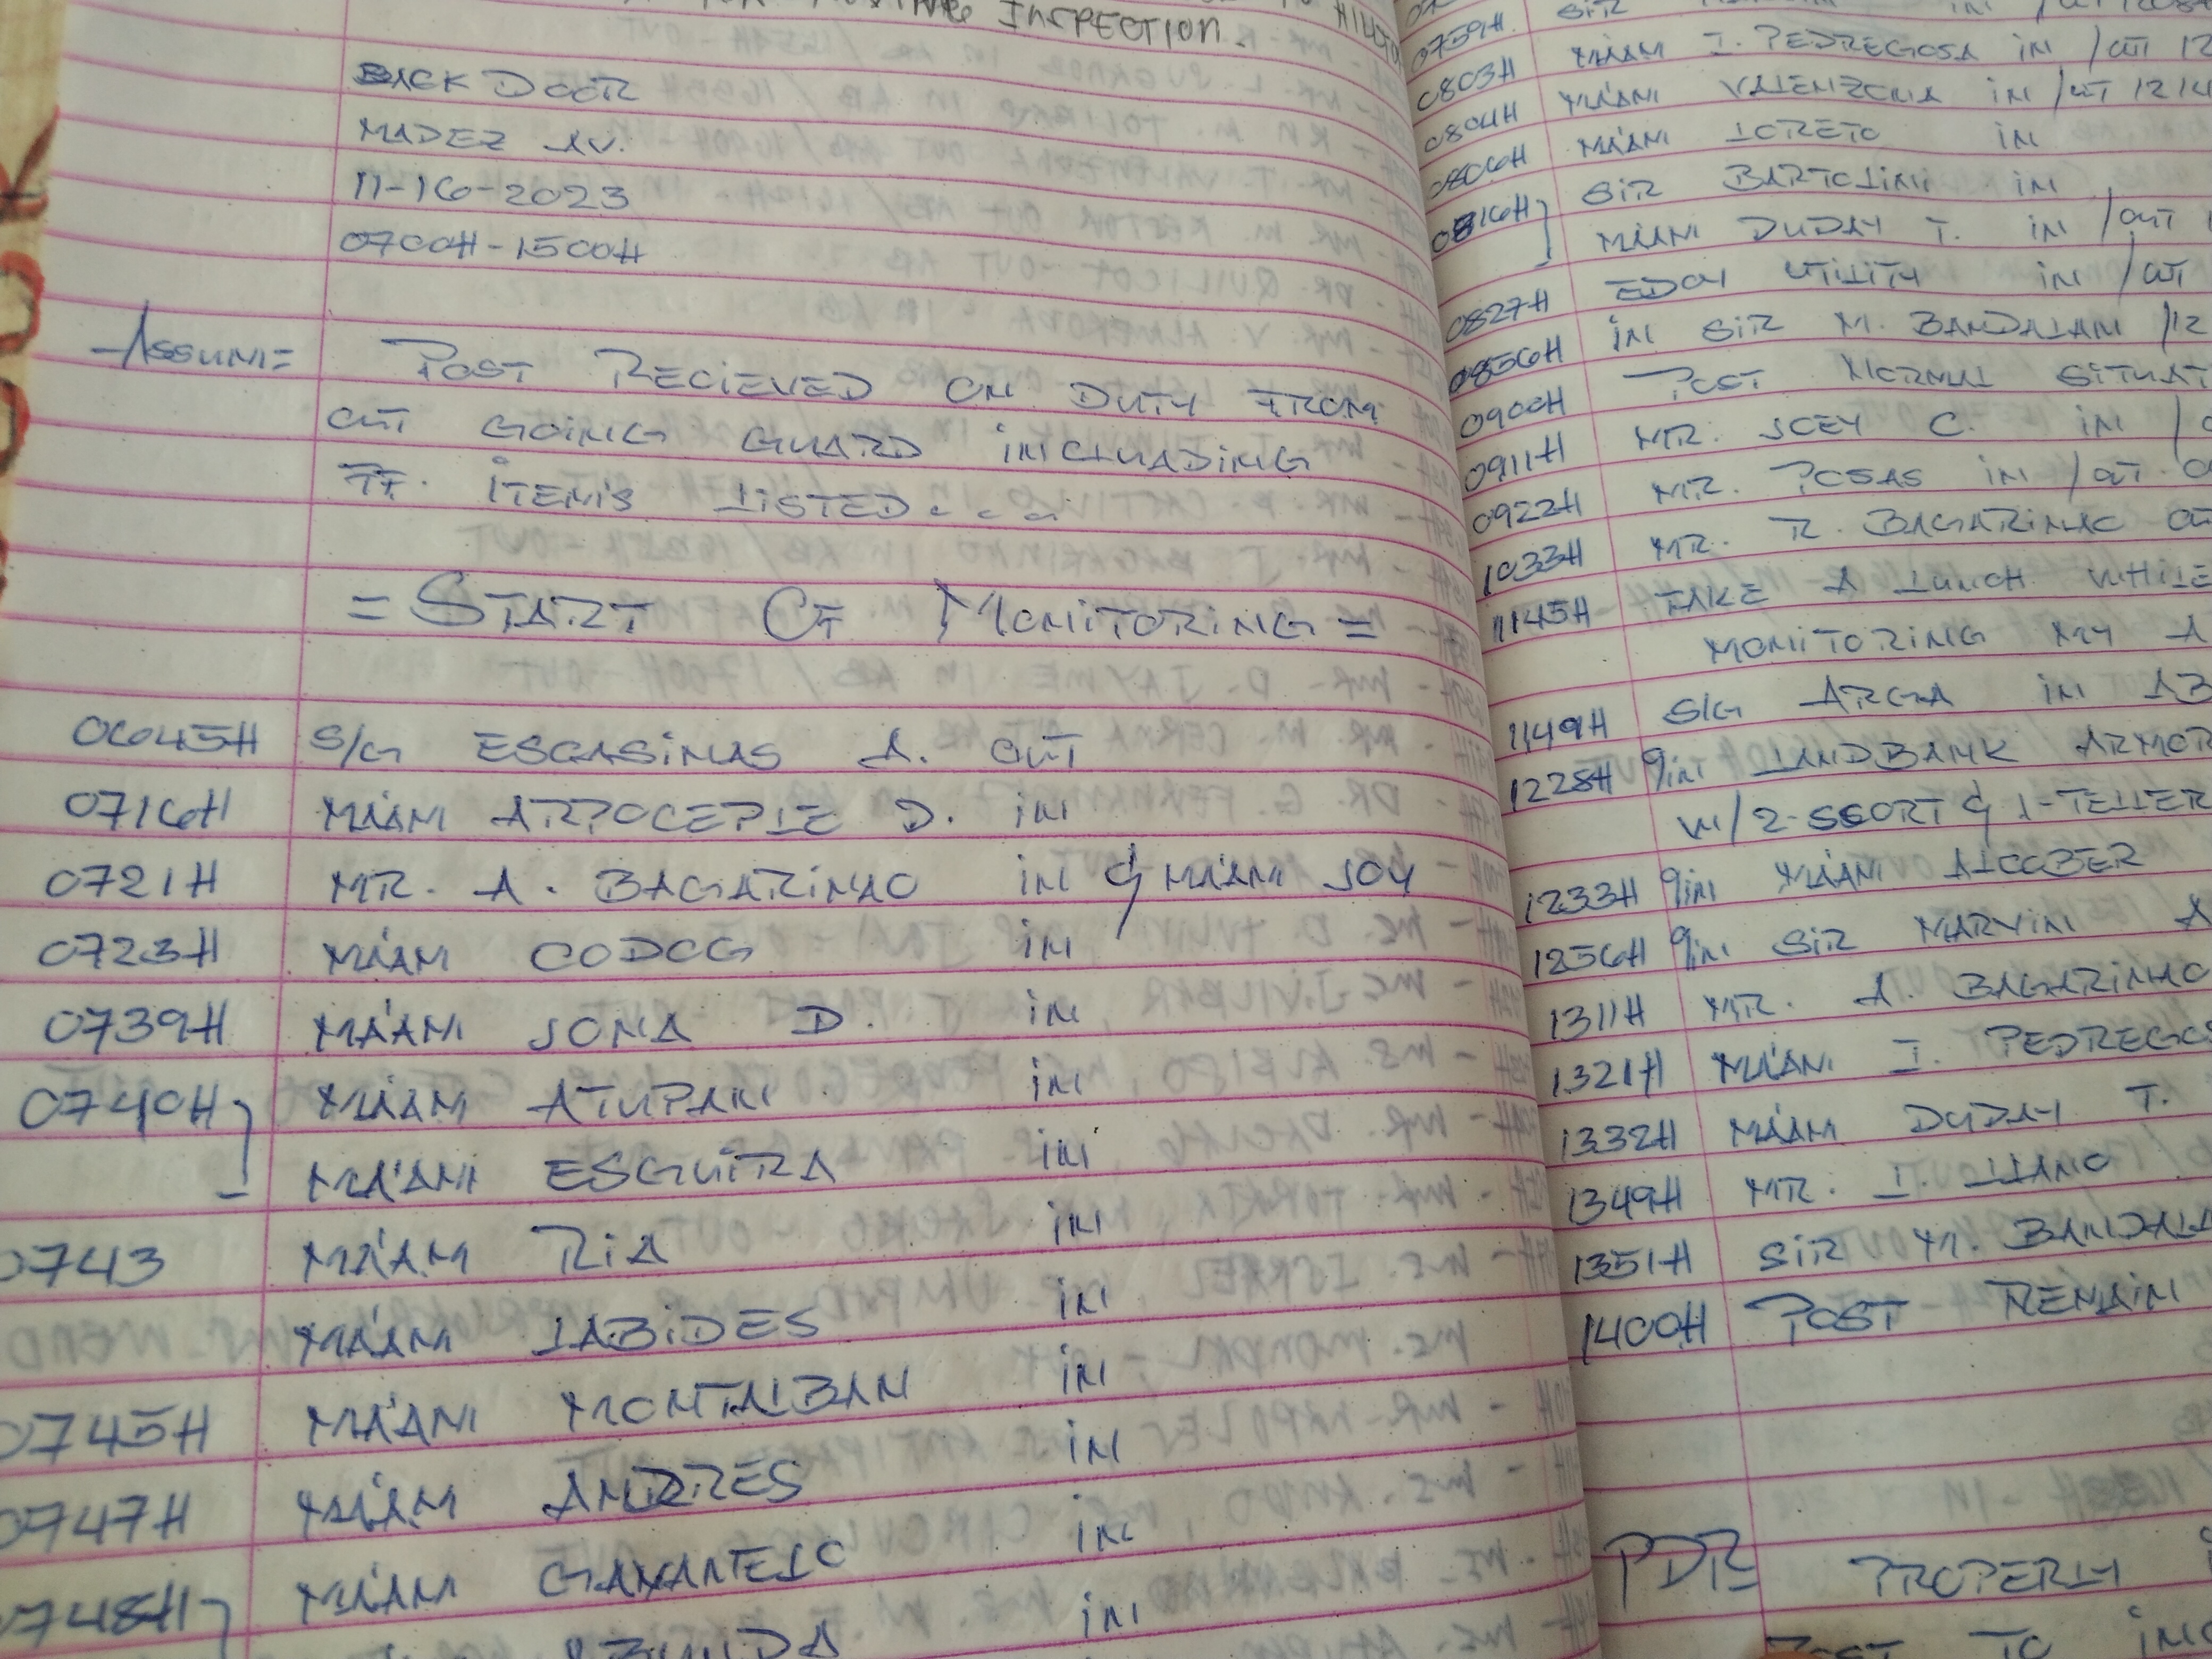 INSPECTION.
BACK DOOR
MADEZ AV.
11-16-2023
0700H-1500H
ASSUM= POST RECIEVED ON DUTY FROM
OUT GOING GUARD INCLUADING
FF. ITEMS LISTED....
= START OF MONITORING =
0645H S/G ESCASINAS A. OUT
0716H MA'AM ARPOCEPLE D. IN
0721H MR. A. BAGARINAO IN & MA'AM JOY
0723H MA'AM CODOG IN
0739H MA'AM JONA D. IN
0740H MA'AM ATUPAN IN
MA'AM ESGUIRA IN
0743 MA'AM RIA IN
MA'AM LABIDES IN
0745H MA'AM MONTALBAN IN
0747H MA'AM ANDRES IN
0748H MA'AM GAMANTELO IN
IN
0759H SIR IN
0803H MA'AM I. PEDREGOSA IN /OUT 12
0804H MA'AM VALENZONA IN /OUT 1214
0806H MA'AM LORETO IN
0816H SIR BARTOLINI IN
MA'AM DUDAY T. IN /OUT 1
0827H EDOY UTILITY IN /OUT
0856H IN SIR M. BANDALAN /12
0900H POST NORMAL SITUAT
0911H MR. JOEY C. IN /O
0922H MR. POSAS IN /OUT 0
1033H MR. R. BAGARINAO OU
1145H TAKE A LUNCH WHILE
MONITORING MY A
1149H S/G ARGA IN AB
1228H IN LANDBANK ARMOR
W/ 2-SSORT & 1-TELLER
1233H IN MA'AM ALCOBER
1256H IN SIR MARVIN A
1311H MR. A. BAGARINAO
1321H MA'AM I. PEDREGOS
1332H MA'AM DUDAY T.
1349H MR. I. LLANO
1351H SIR M. BANDALA
1400H POST REMAIN
PDR= PROPERLY
POST TO INC